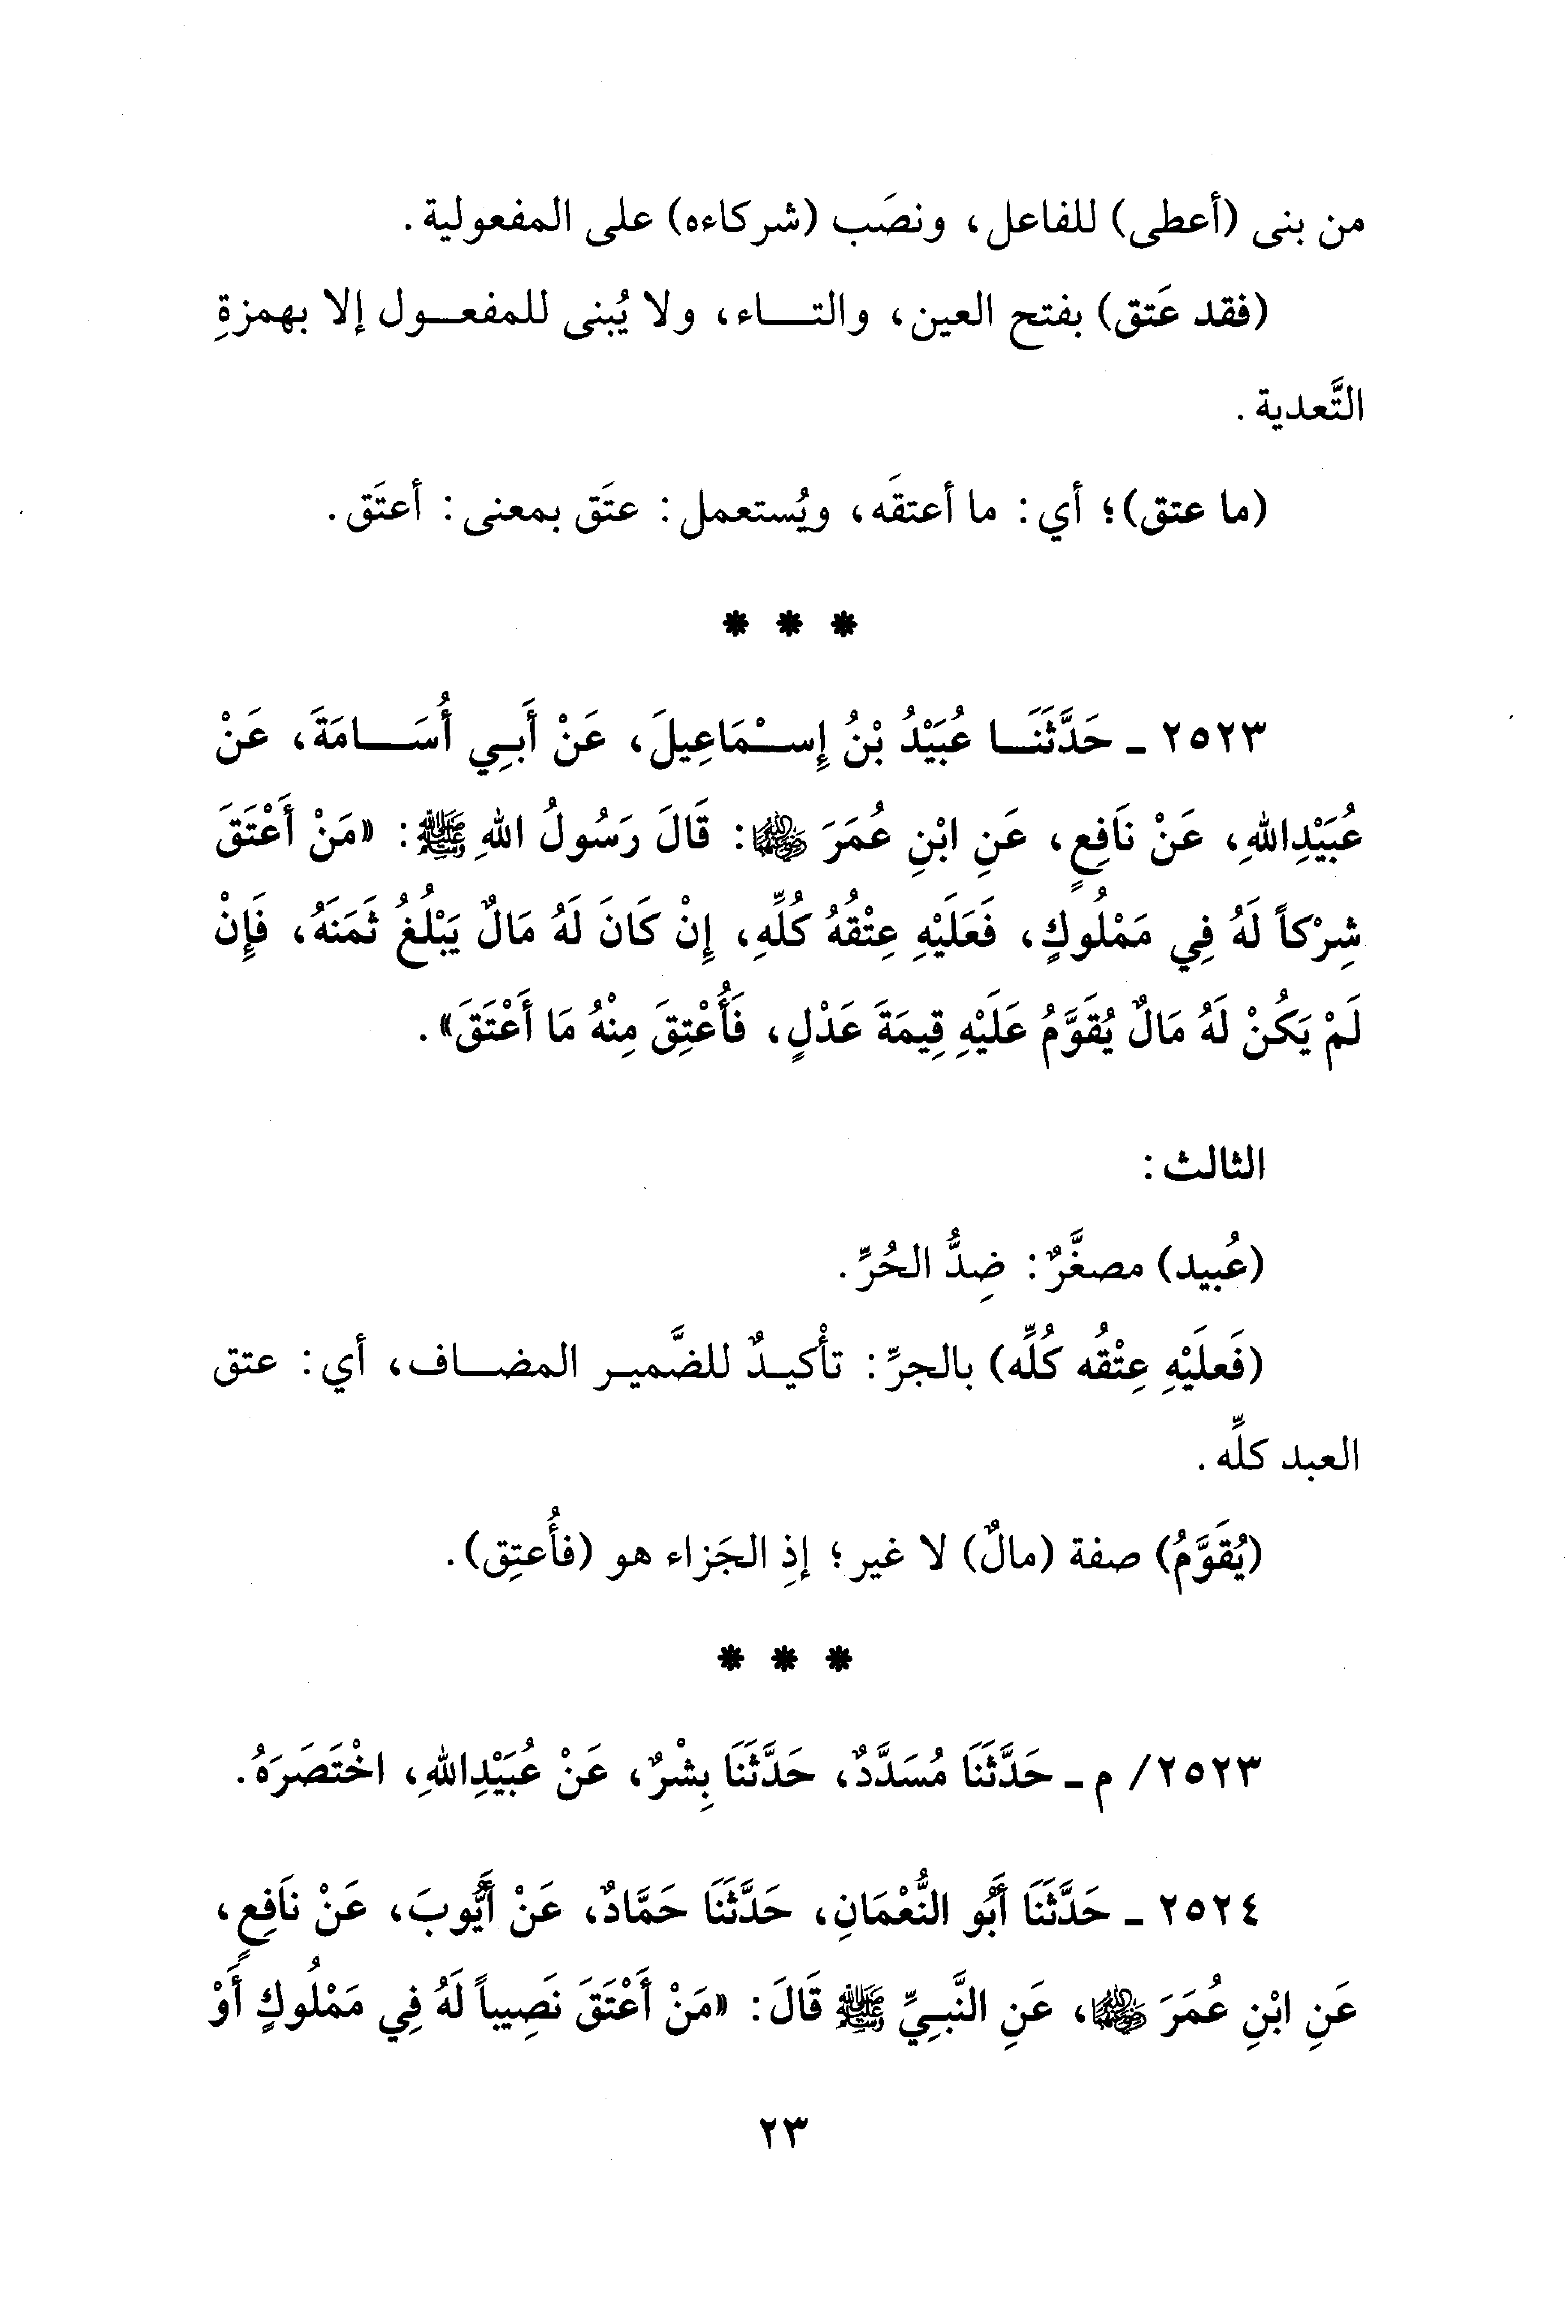 من بنى (أعطى) للفاعل، ونصَب (شركاءه) على المفعولية.
(فقد عَتق) بفتح العين، والتـــاء، ولا يُبنى للمفعـــول إلا بهمزةِ
التَّعدية.
(ما عتق)؛ أي: ما أعتقَه، ويُستعمل: عتَق بمعنى: أعتَق.
* * *
٢٥٢٣ ـ حَدَّثَنَــا عُبَيْدُ بْنُ إِســْمَاعِيلَ، عَنْ أَبـِي أُسَـــامَةَ، عَنْ
عُبَيْدِاللهِ، عَنْ نَافِعٍ، عَنِ ابْنِ عُمَرَ رضي الله عنهما: قَالَ رَسُولُ اللهِ ﷺ: «مَنْ أَعْتَقَ
شِرْكاً لَهُ فِي مَمْلُوكٍ، فَعَلَيْهِ عِتْقُهُ كُلِّهِ، إِنْ كَانَ لَهُ مَالٌ يَبْلُغُ ثَمَنَهُ، فَإِنْ
لَمْ يَكُنْ لَهُ مَالٌ يُقَوَّمُ عَلَيْهِ قِيمَةَ عَدْلٍ، فَأُعْتِقَ مِنْهُ مَا أَعْتَقَ».
الثالث:
(عُبيد) مصغَّرٌ: ضِدُّ الحُرِّ.
(فَعلَيْهِ عِتْقُه كُلِّه) بالجرِّ: تأْكيـدٌ للضَّميـر المضـــاف، أي: عتق
العبد كلِّه.
(يُقَوَّمُ) صفة (مالٌ) لا غير؛ إذِ الجَزاء هو (فأُعتِق).
* * *
٢٥٢٣/ م ـ حَدَّثَنَا مُسَدَّدٌ، حَدَّثَنَا بِشْرٌ، عَنْ عُبَيْدِاللهِ، اخْتَصَرَهُ.
٢٥٢٤ ـ حَدَّثَنَا أَبُو النُّعْمَانِ، حَدَّثَنَا حَمَّادٌ، عَنْ أَيُّوبَ، عَنْ نَافِعٍ،
عَنِ ابْنِ عُمَرَ رضي الله عنهما، عَنِ النَّبـِيِّ ﷺ قَالَ: «مَنْ أَعْتَقَ نَصِيباً لَهُ فِي مَمْلُوكٍ أَوْ
٢٣